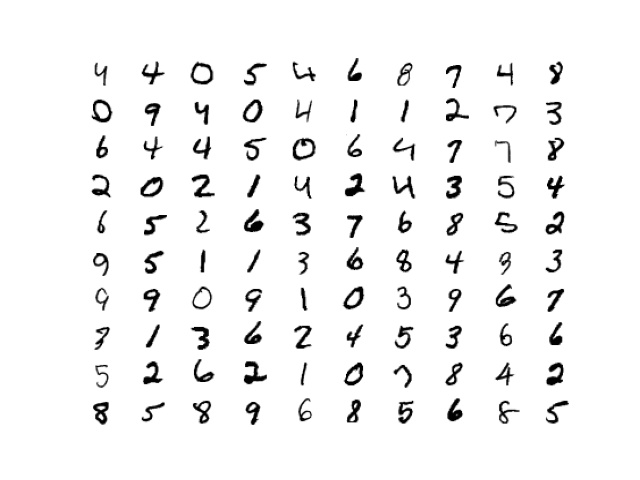 4 4 0 5 4 6 8 7 4 8
0 9 4 0 4 1 1 2 7 3
6 4 4 5 0 6 4 7 7 8
2 0 2 1 4 2 4 3 5 4
6 5 2 6 3 7 6 8 5 2
9 5 1 1 3 6 8 4 3 3
9 9 0 9 1 0 3 9 6 7
3 1 3 6 2 4 5 3 6 6
5 2 6 2 1 0 7 8 4 2
8 5 8 9 6 8 5 6 8 5